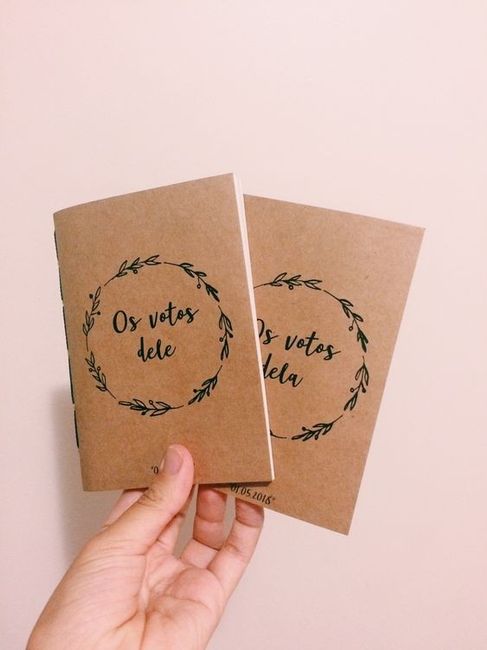 Os votos
dele
Os votos
dela
01.05.2018